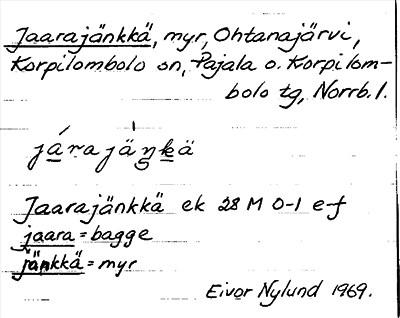 Jaarajänkkä, myr, Ohtanajärvi,
Korpilombolo sn, Pajala o. Korpilom-
bolo tg, Norrb. l.
já̱rajäŋḵä
Jaarajänkkä ek 28 M 0-1 e-f
jaara = bagge
jänkkä = myr
Eivor Nylund 1969.